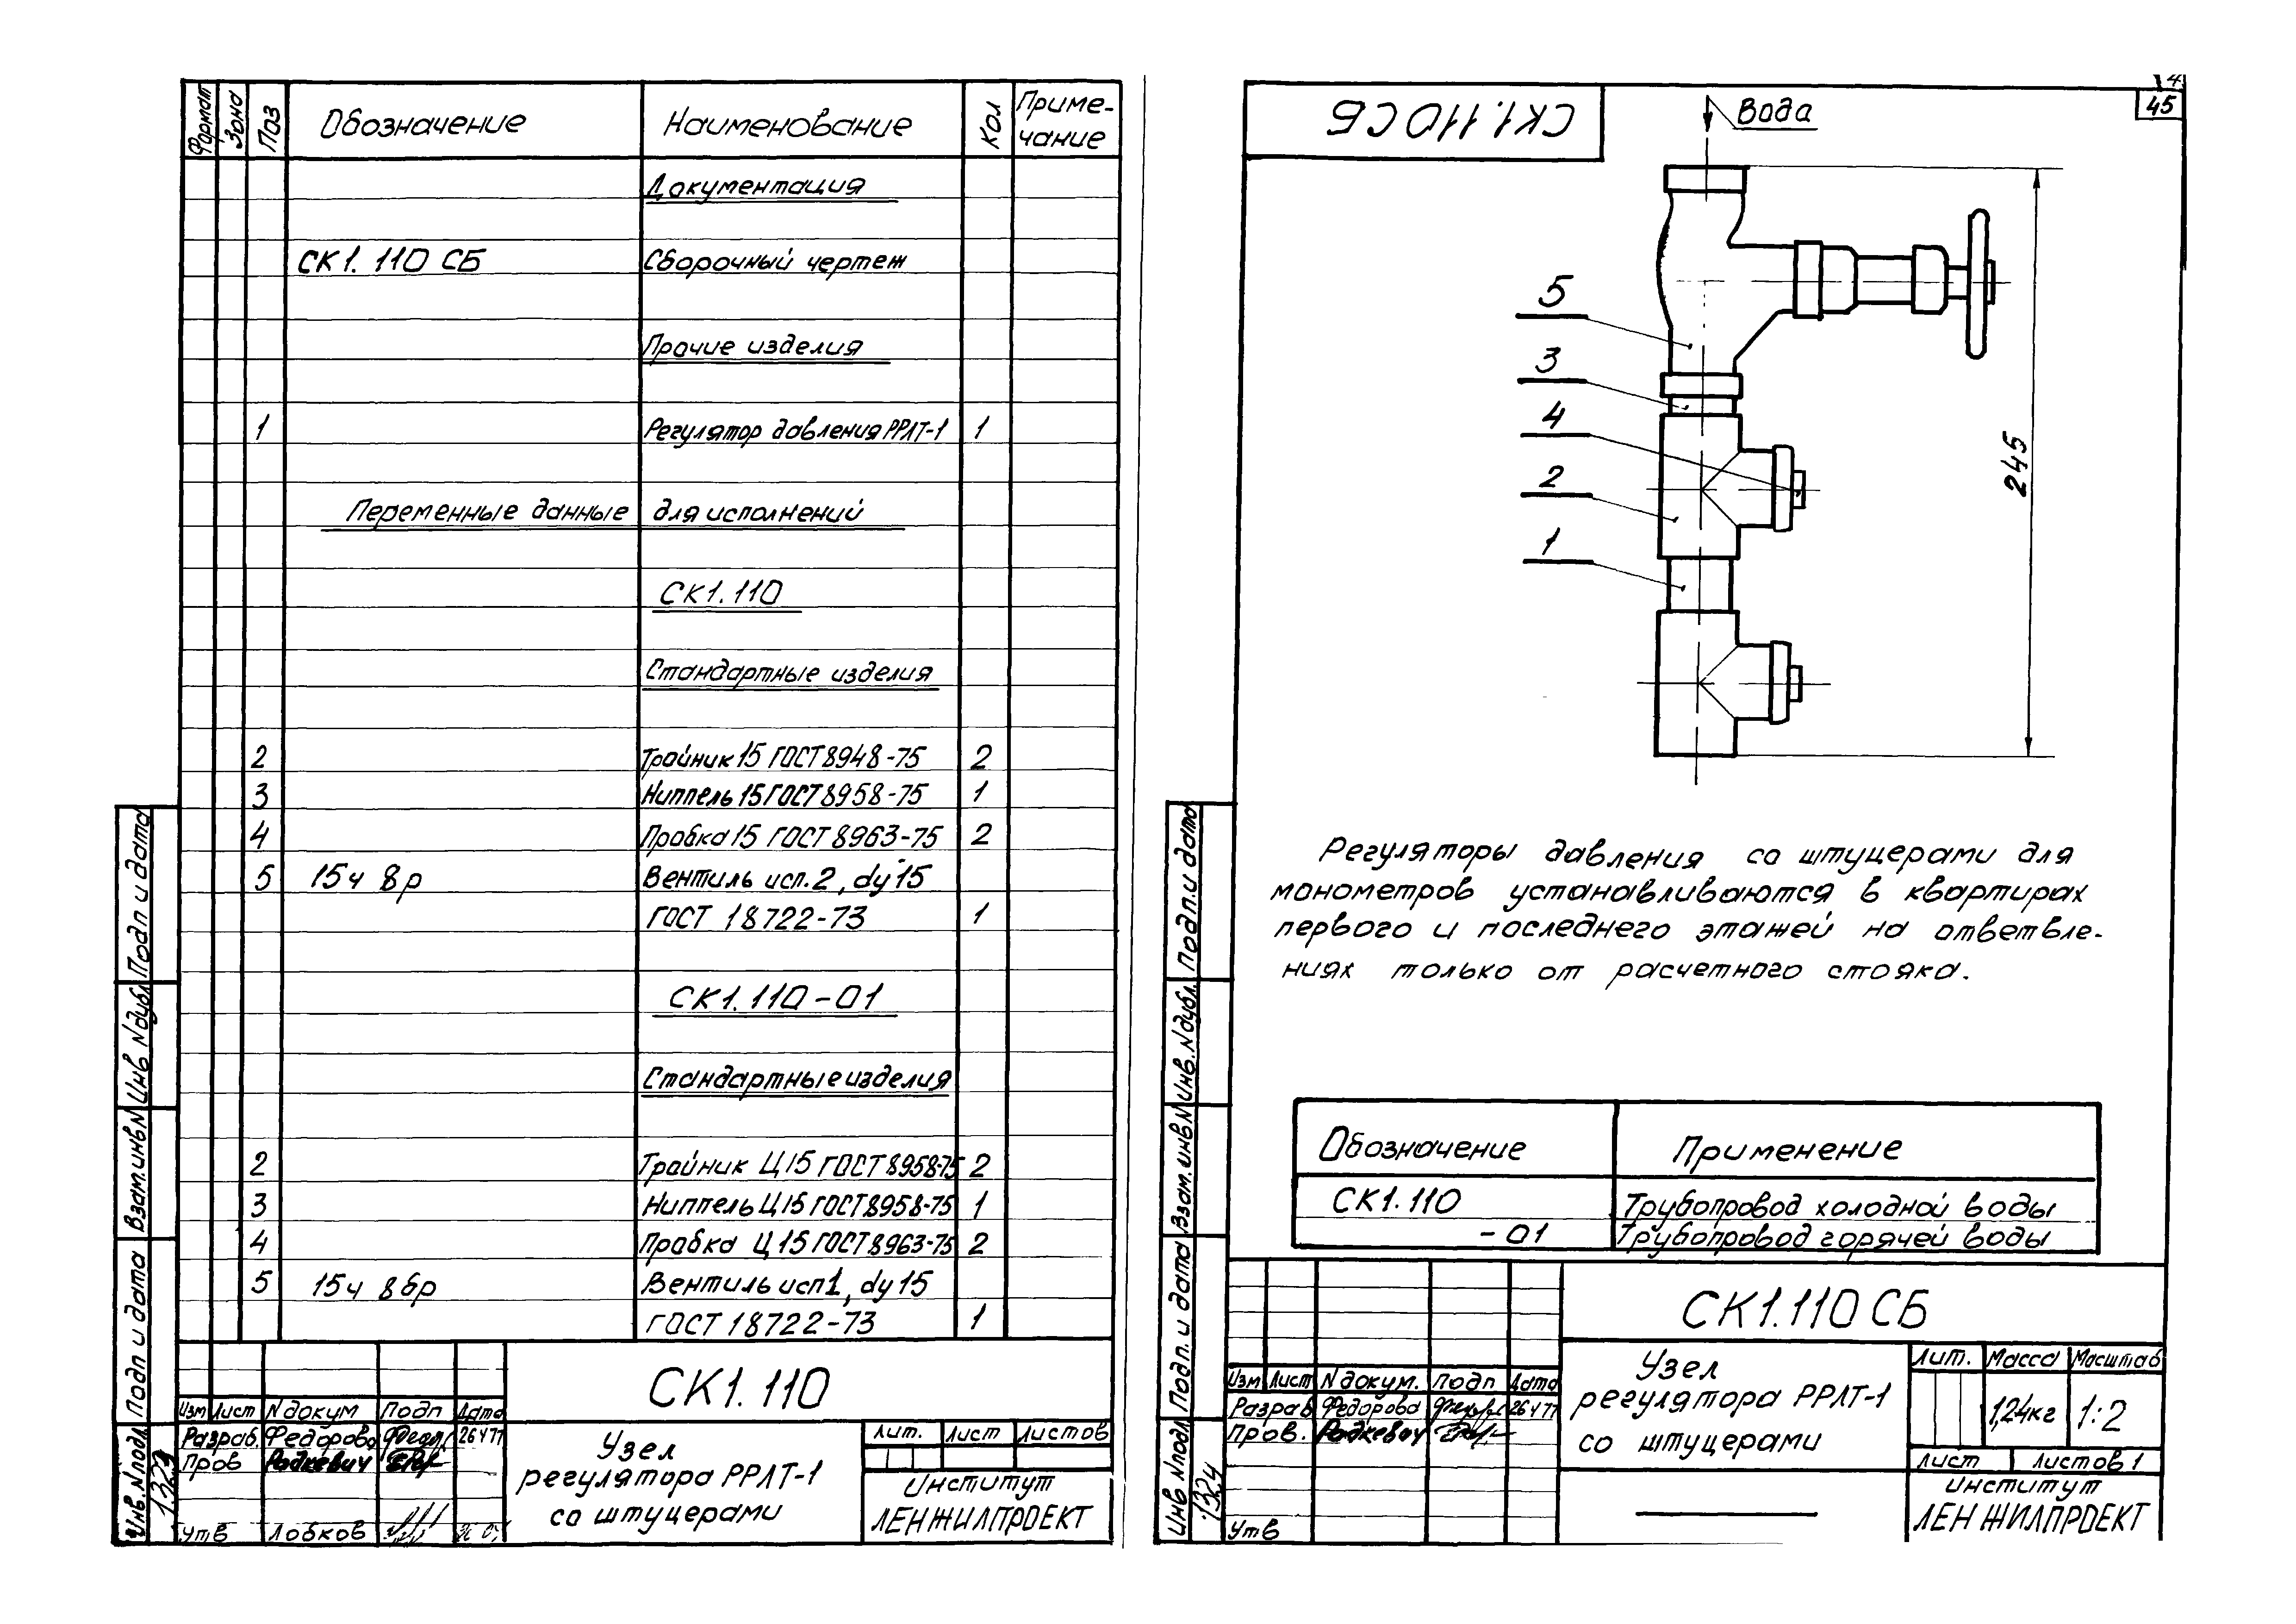 Формат Зона Поз Обозначение Наименование Кол Приме-
чание
Документация
СК1. 110 СБ Сборочный чертеж
Прочие изделия
1 Регулятор давления РРЛТ-1 1
Переменные данные для исполнений
СК1.110
Стандартные изделия
2 Тройник 15 ГОСТ 8948-75 2
3 Ниппель 15 ГОСТ 8958-75 1
4 Пробка 15 ГОСТ 8963-75 2
5 15ч 8р Вентиль исп.2, dу 15
ГОСТ 18722-73 1
СК1. 110-01
Стандартные изделия
2 Тройник Ц15 ГОСТ 8958-75 2
3 Ниппель Ц15 ГОСТ 8958-75 1
4 Пробка Ц 15 ГОСТ 8963-75 2
5 15ч 8бр Вентиль исп1, dу 15
ГОСТ 18722-73 1
СК1. 110
Изм Лист N докум Подп Дата
Разраб. Федорова 26 4 77
Пров Радкевич
Утв Лобков
Узел
регулятора РРЛТ-1
со штуцерами
Лит. Лист Листов
Институт
ЛЕНЖИЛПРОЕКТ
Подп и дата
Инв Nдубл.
Взам.инв N
Подп и дата
Инв. Nподл
СК1.110СБ
45
Вода
5
3
4
2
1
245
Регуляторы давления со штуцерами для
манометров устанавливаются в квартирах
первого и последнего этажей на ответвле-
ниях только от расчетного стояка.
Обозначение Применение
СК1.110 Трубопровод холодной воды
-01 Трубопровод горячей воды
СК1.110 СБ
Изм Лист N докум. Подп Дата
Разраб Федорова 26 4 77
Пров. Радкевич
Утв
Узел
регулятора РРЛТ-1
со штуцерами
Лит. Масса Масштаб
1,24кг 1:2
Лист Листов 1
Институт
ЛЕНЖИЛПРОЕКТ
Подп. и дата
Инв. Nдубл.
Взам. инв N
Подп. и дата
Инв Nподл
1324